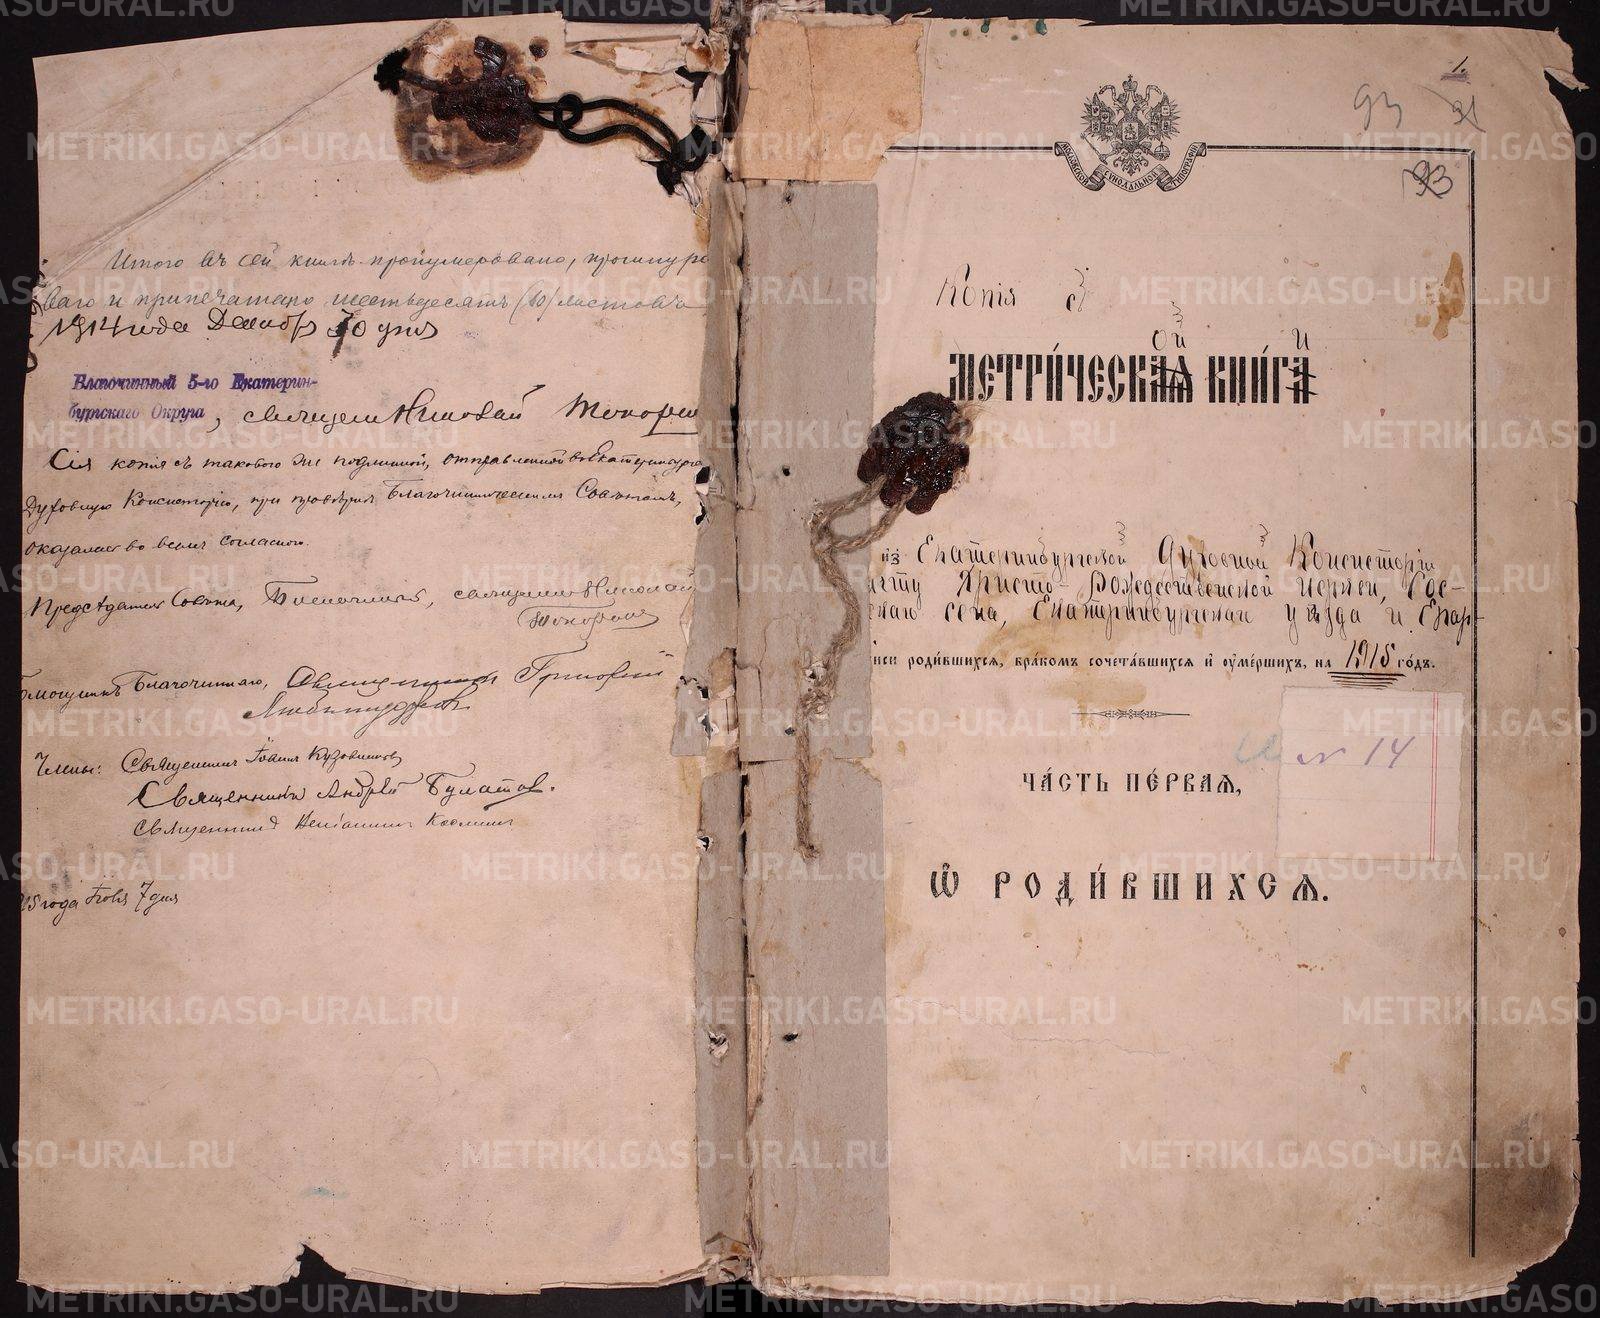 Итого въ сей книгѣ пронумеровано, прошнуро
вано и припечатано шестьдесятъ (60) листовъ
1914 года Декабр 30 дня
Благочинный 5-го Екатерин-
бургскаго Округа, священникъ Николай
Сія копія съ таковою же подлинной, отправленной въ Екатеринбургс
Духовную Консисторію, при провѣркѣ Благочинническимъ Совѣтомъ,
оказалась во всемъ согласною.
Предсѣдатель Совѣта, Благочинный, священникъ Николай
Благочиннаго, Священникъ Григорій
Члены: Священникъ Іоаннъ
Священникъ Андрей Булатов.
Священникъ Веніаминъ
15 года 7 дня
1.
93
31
93
МОСКОВСКОЙ СѴНОДАЛЬНОЙ ТИПОГРАФІИ
Копія съ
МЕТРИ́ЧЕСКАѦ КНИ́ГА
ой и
из Екатеринбургской Духовной Консисторіи
Христо-Рождественской церкви,
села, Екатеринбургскаго уѣзда и Епар-
роди́вшихсѧ, бра́комъ сочета́вшихсѧ и ᲂуме́ршихъ, на 1915 го́дъ.
№ 14
ЧА́СТЬ ПЕ́РВАѦ,
Ѡ РОДИ́ВШИХСѦ.
METRIKI.GASO-URAL.RU